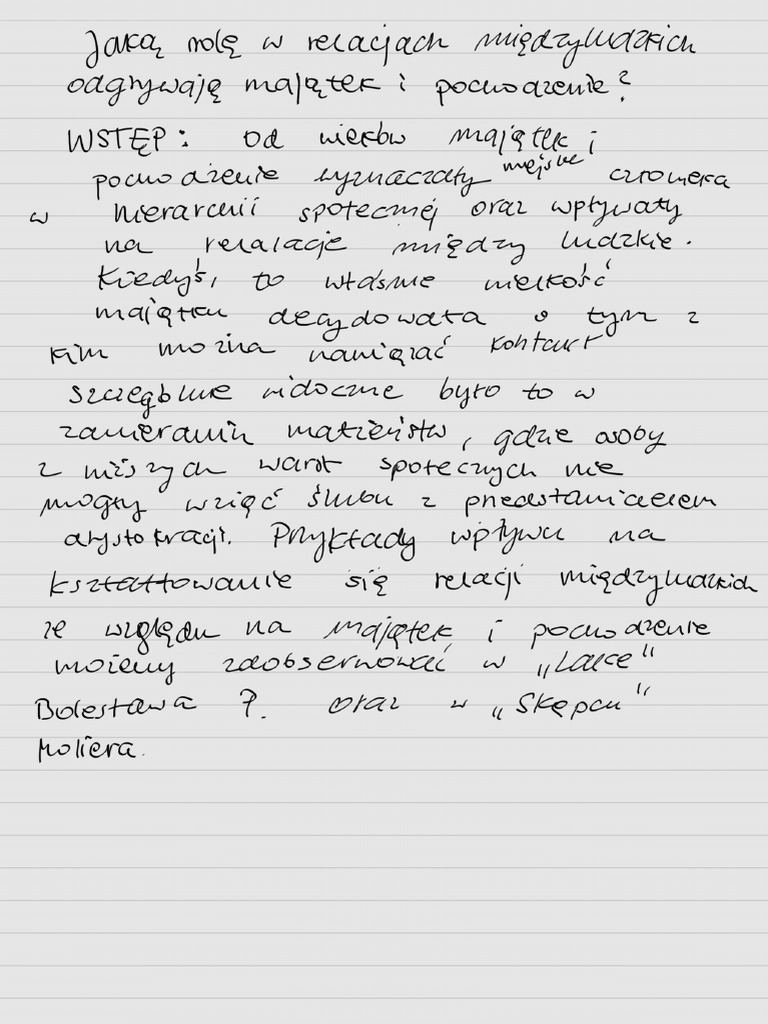 Jaką rolę w relacjach międzyludzkich
odgrywają majątek i pochodzenie?
WSTĘP: Od wieków majątek i
pochodzenie wyznaczały miejsce człowieka
w hierarchii społecznej oraz wpływały
na relalacje między ludzkie.
Kiedyś, to właśnie wielkość
majątku decydowała o tym z
kim można nawiązać kontakt
szczególnie widoczne było to w
zawieraniu małżeństw, gdzie osoby
z niższych warst społecznych nie
mogły wziąć ślubu z przedstawicielem
arystokracji. Przykłady wpływu na
kształtowanie się relacji międzyludzkich
ze względu na majątek i pochodzenie
możemy zdobserwować w „Lalce"
Bolesława P. oraz w „Skąpcu"
Moliera.